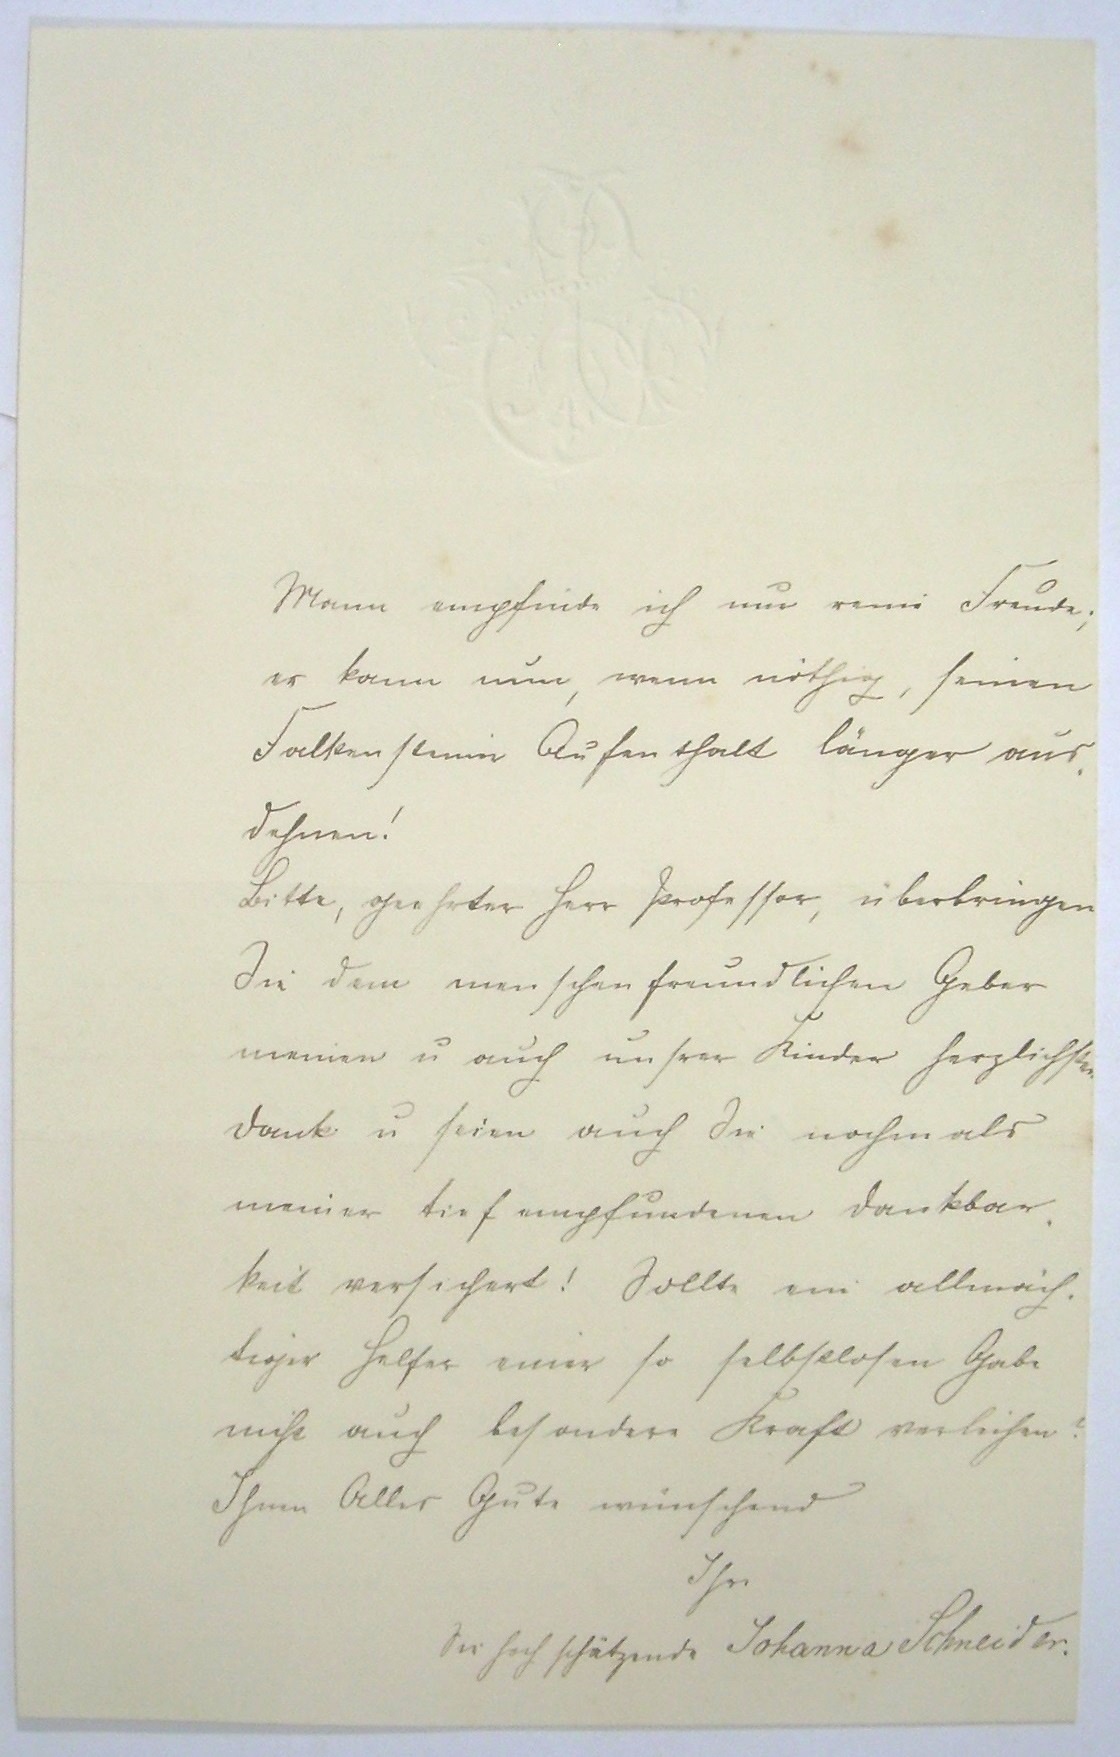 Mann empfinde ich nur reine Freude;
er kann nun, wenn nöthig, seinen
Falkensteiner Aufenthalt länger aus-
dehnen!
Bitte, geehrter Herr Professor, überbringen
Sie dem menschenfreundlichen Geber
meinen u auch unsrer Kinder herzlichsten
Dank u seien auch Sie nochmals
meiner tief empfundenen Dankbar-
keit versichert! Sollte ein allmäch-
tiger Helfer einer so selbstlosen Gabe
nicht auch besondere Kraft verleihen?
Ihnen Alles Gute wünschend
Ihre
Sie hoch schätzende Johanna Schneider.